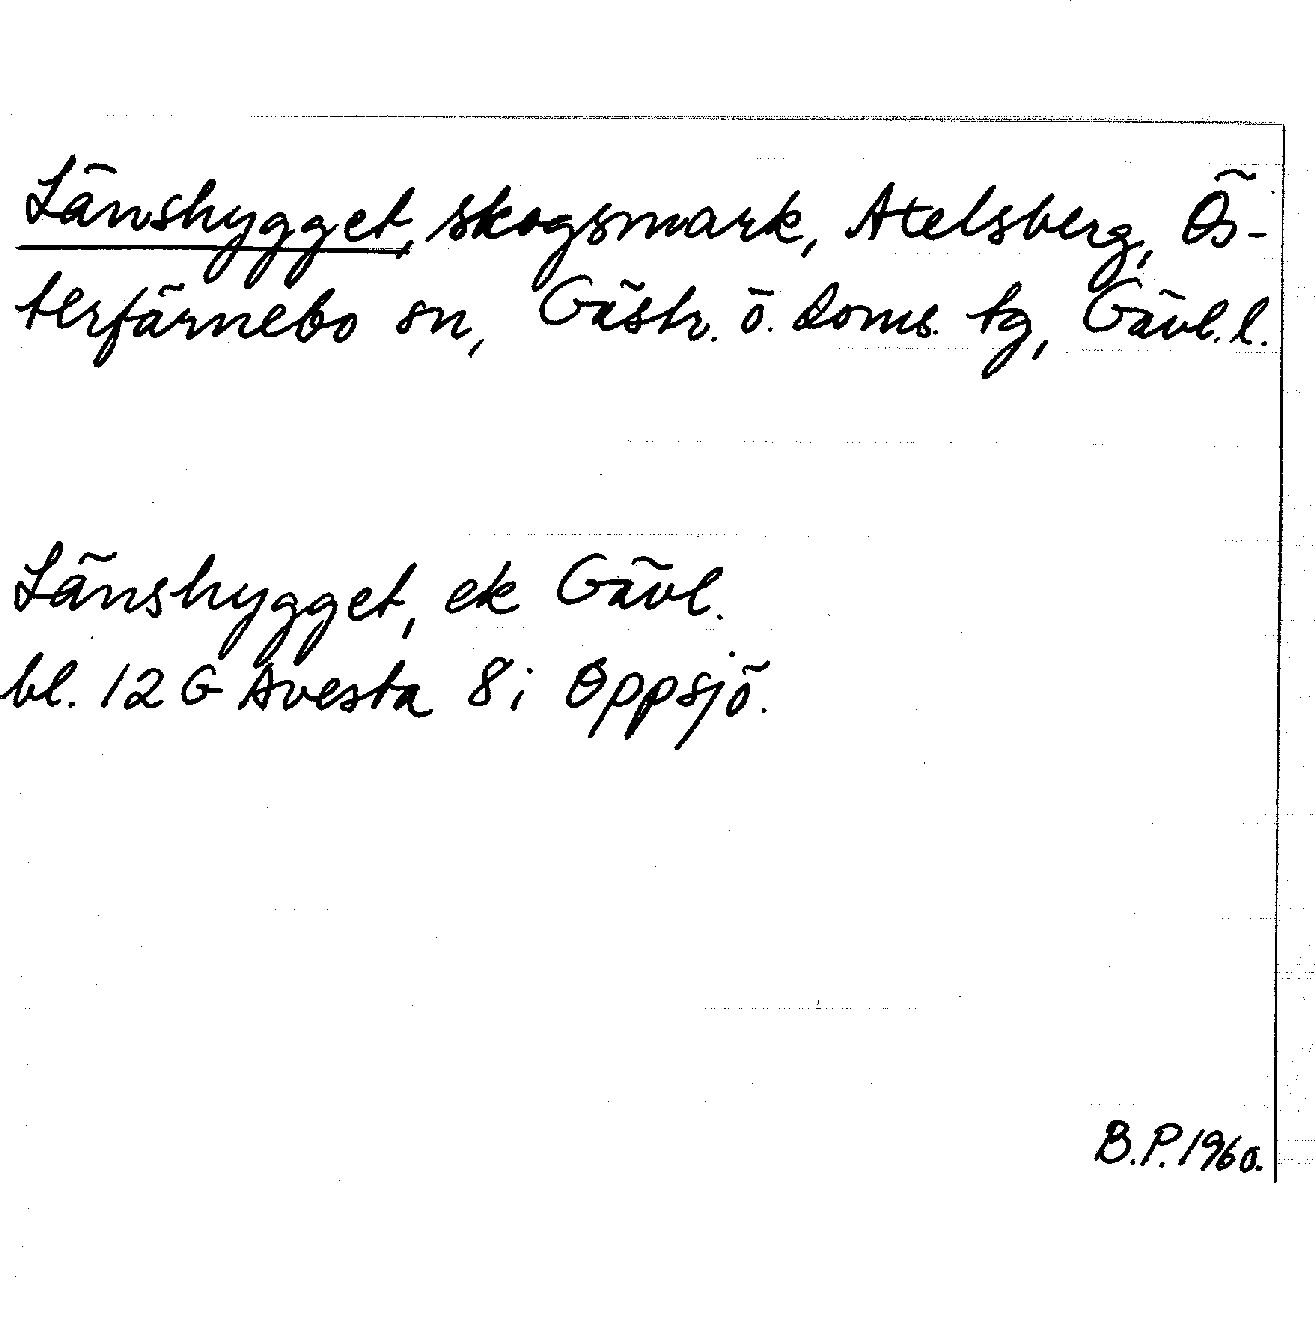 Länshygget, skogsmark, Atelsberg, Ös-
terfärnebo sn, Gästr. ö. doms. tg, Gävl. l.
Länshygget, ek Gävl.
bl. 12 G Avesta 8 i Oppsjö.
B.P. 1960.